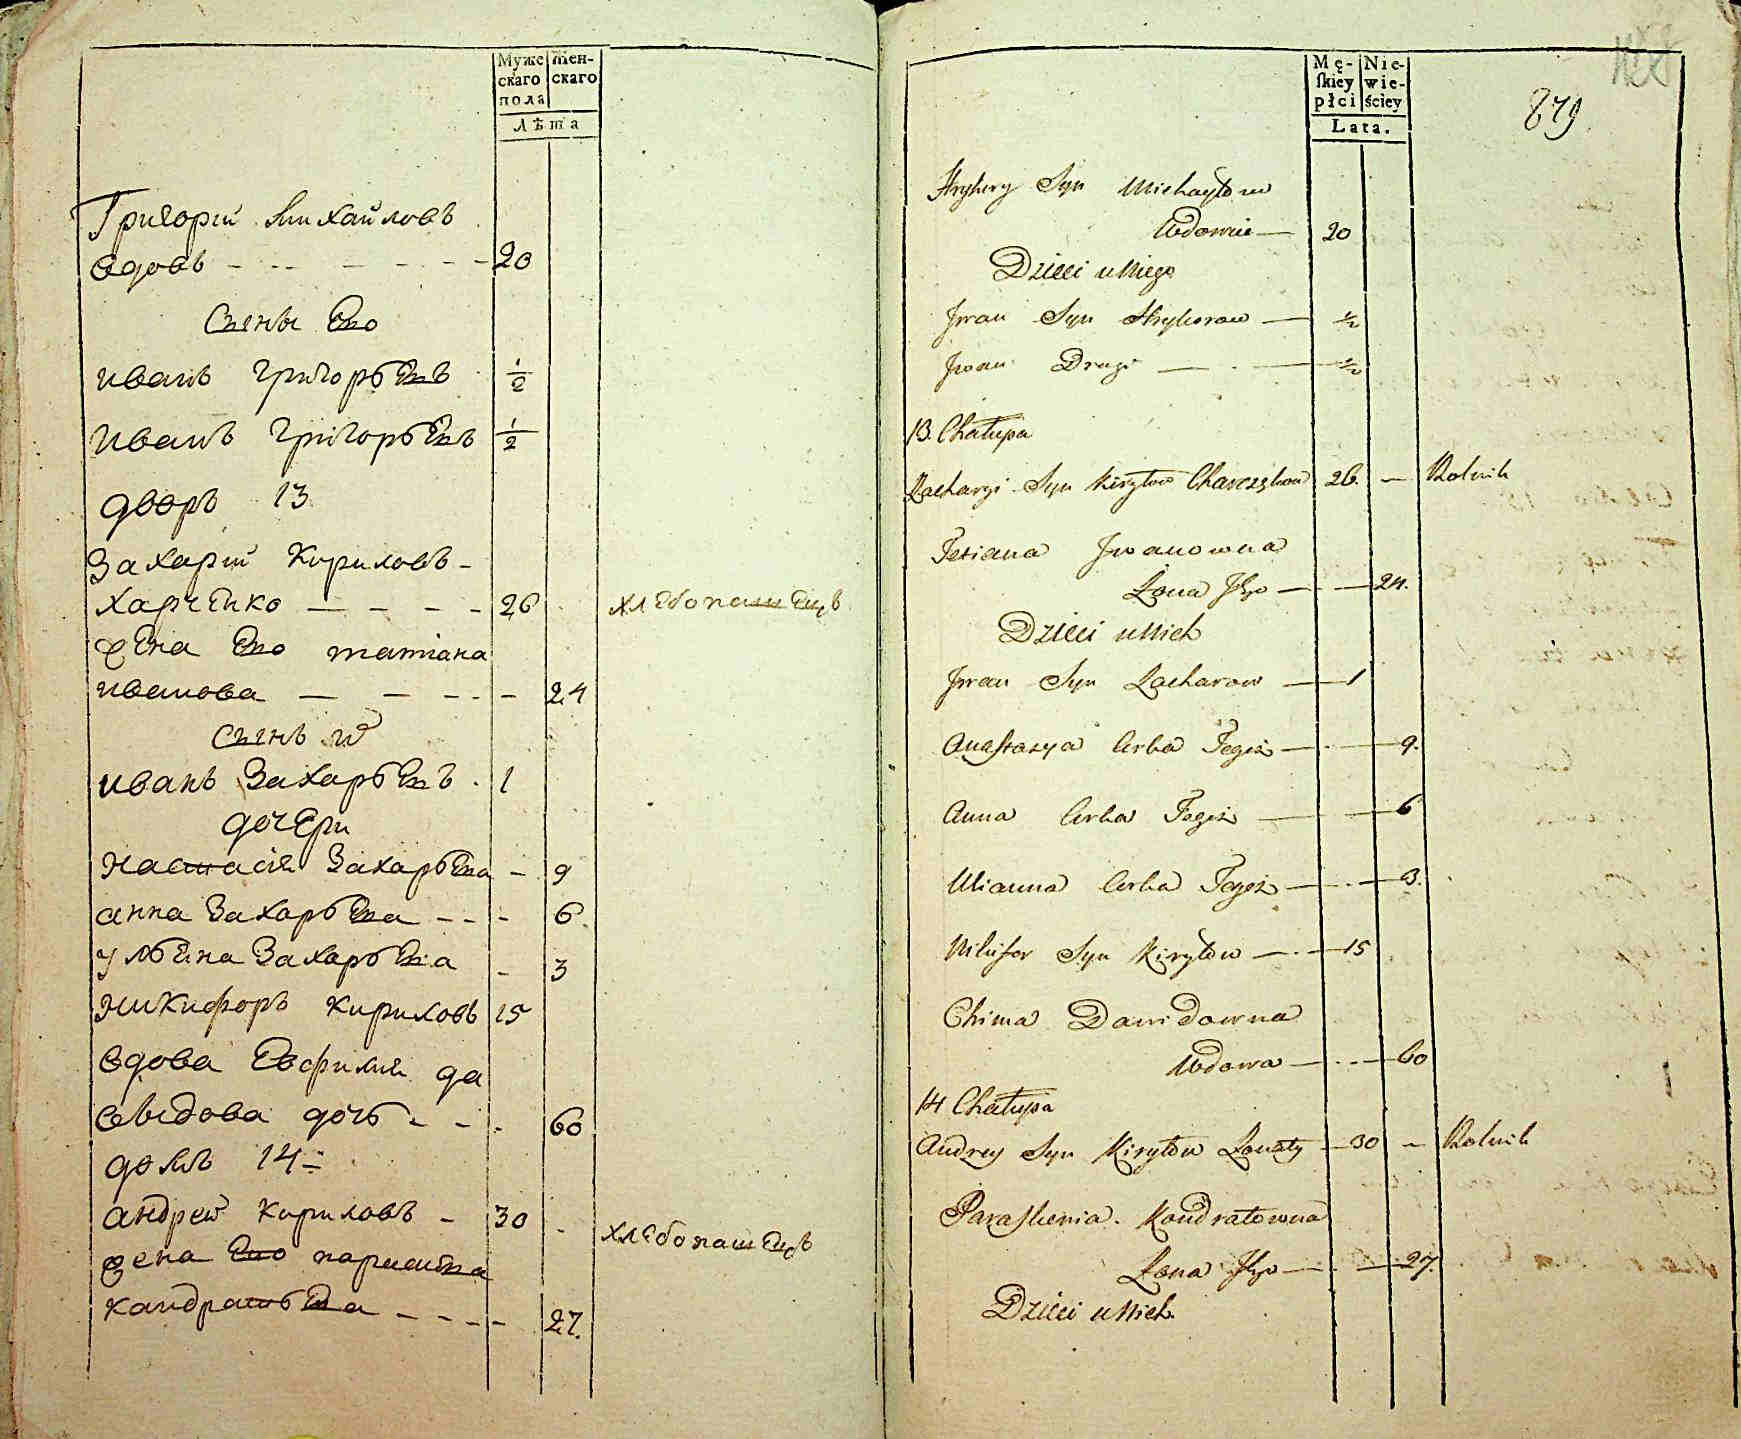 Муже
скаго
пола
Жен-
скаго
Лѣта
Григорій Михайловъ
вдовъ 20
Сыны Его
иванъ григорьевъ 1/2
иванъ григорьевъ 1/2
дворъ 13
Захарій Кириловъ
харченко 26 хлебопашецъ
жена Его татіана
иванова 24
сынъ их
иванъ Захарьевъ 1
дочери
Настасія Захарьева 9
анна Захарьева 6
ульяна Захарьева 3
Никифоръ кириловъ 15
вдова Евфимия да
выдова дочь 60
домъ 14
андрей кириловъ 30 хлебопашецъ
жена Его
кандратьева 27
Mę-
skiey
płci
Nie-
wie-
ściey
Lata.
879
Hryhery Syn Michayłow
Wdowiec 20
Dzieci u Niego
Jwan Syn Hryhorow 1/2
Jwan Drugi 1/2
13. Chałupa
Zacharyi Syn Kiryłow 26. Rolnik
Tetiana Jwanowna
Żona Jego 24.
Dzieci u Nich
Jwan Syn Zacharow 1
Anastazya Corka Tegoż 9.
Anna Corka Tegoż 6
Ulianna Corka Tegoż 3.
Nikifor Syn Kiryłow 15
Chima Dawidowna
Wdowa 60
14 Chałupa
Andrey Syn Kiryłow 30 Rolnik
Paraskienia Kondratowna
Żona Jego 27.
Dzieci u Nich